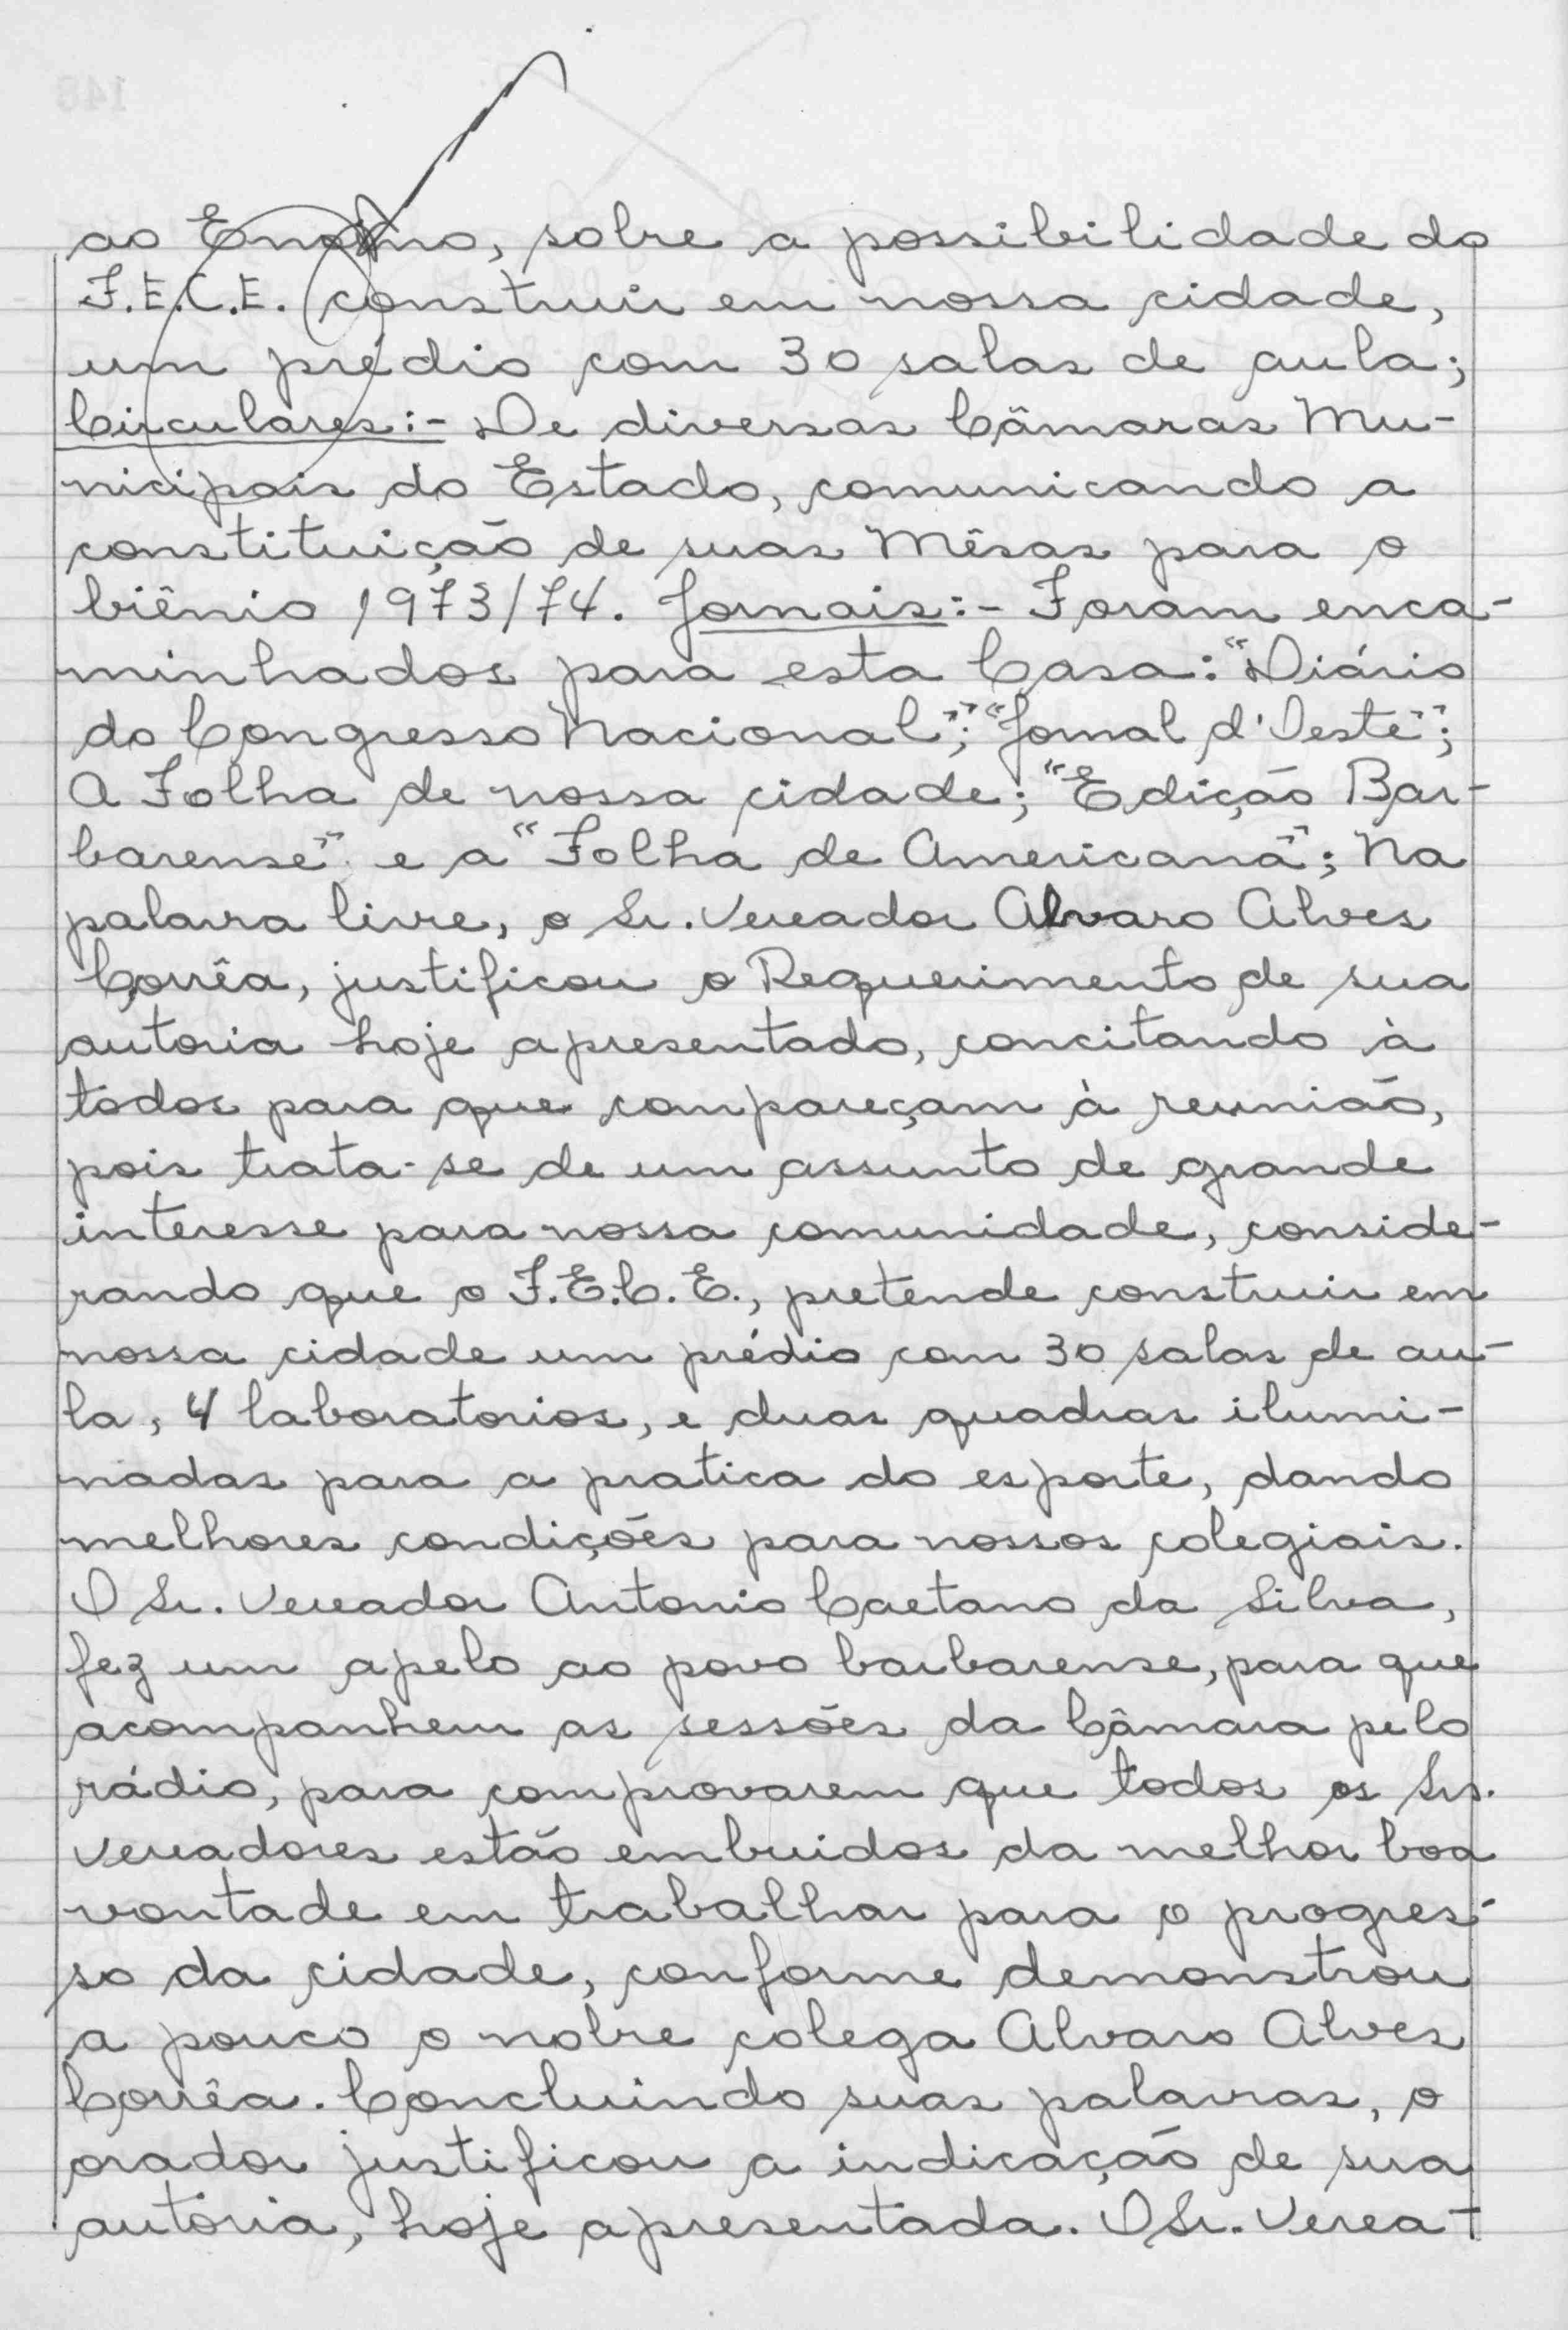 ao Ensino, sobre a possibilidade do
F.E.C.E. construir em nossa cidade,
um prédio com 30 salas de aula;
Circulares:- De diversas Câmaras Mu-
nicipais do Estado, comunicando a
constituição de suas Mêsas para o
biênio 1973/74. Jornais:- Foram enca-
minhados para esta Casa: "Diário
do Congresso Nacional"; "Jornal d'Oeste";
A Folha de nossa cidade; "Edição Bar-
barense" e a "Folha de Americana"; Na
palavra livre, o Sr. Vereador Alvaro Alves
Corrêa, justificou o Requerimento de sua
autoria hoje apresentado, concitando à
todos para que compareçam à reunião,
pois trata-se de um assunto de grande
interesse para nossa comunidade, conside-
rando que o F.E.C.E., pretende construir em
nossa cidade um prédio com 30 salas de au-
la, 4 laboratorios, e duas quadras ilumi-
nadas para a pratica do esporte, dando
melhores condições para nossos colegiais.
O Sr. Vereador Antonio Caetano da Silva,
fez um apelo ao povo barbarense, para que
acompanhem as sessões da Câmara pelo
rádio, para comprovarem que todos os Srs.
Vereadores estão embuidos da melhor boa
vontade em trabalhar para o progres-
so da cidade, conforme demonstrou
a pouco o nobre colega Alvaro Alves
Corrêa. Concluindo suas palavras, o
orador justificou a indicação de sua
autoria, hoje apresentada. O Sr. Verea-